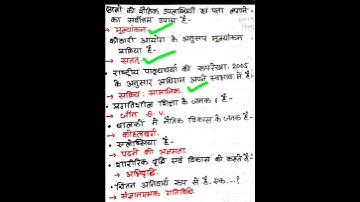 छात्रों की शैक्षिक उपलब्धियों का पता लगाने
का सर्वोत्तम उपाय है-
→ मूल्यांकन
कोठारी आयोग के अनुसार मूल्यांकन
प्रक्रिया है-
→ सतत्
राष्ट्रीय पाठ्यचर्या की रूपरेखा, 2005
के अनुसार अधिगम अपने स्वभाव में है-
→ सक्रिय: सामाजिक
• प्रगतिशील शिक्षा के जनक है-
→ जॉन
• बालकों में नैतिक विकास के जनक है-
→ कोहलबर्ग
• एलेक्सिया है-
→ पढ़ने की अक्षमता
• शारीरिक वृद्धि एवं विकास को कहते हैं-
→ अभिवृद्धि
• चिंतन अनिवार्य रूप से है, एक...?
→ संज्ञानात्मक गतिविधि